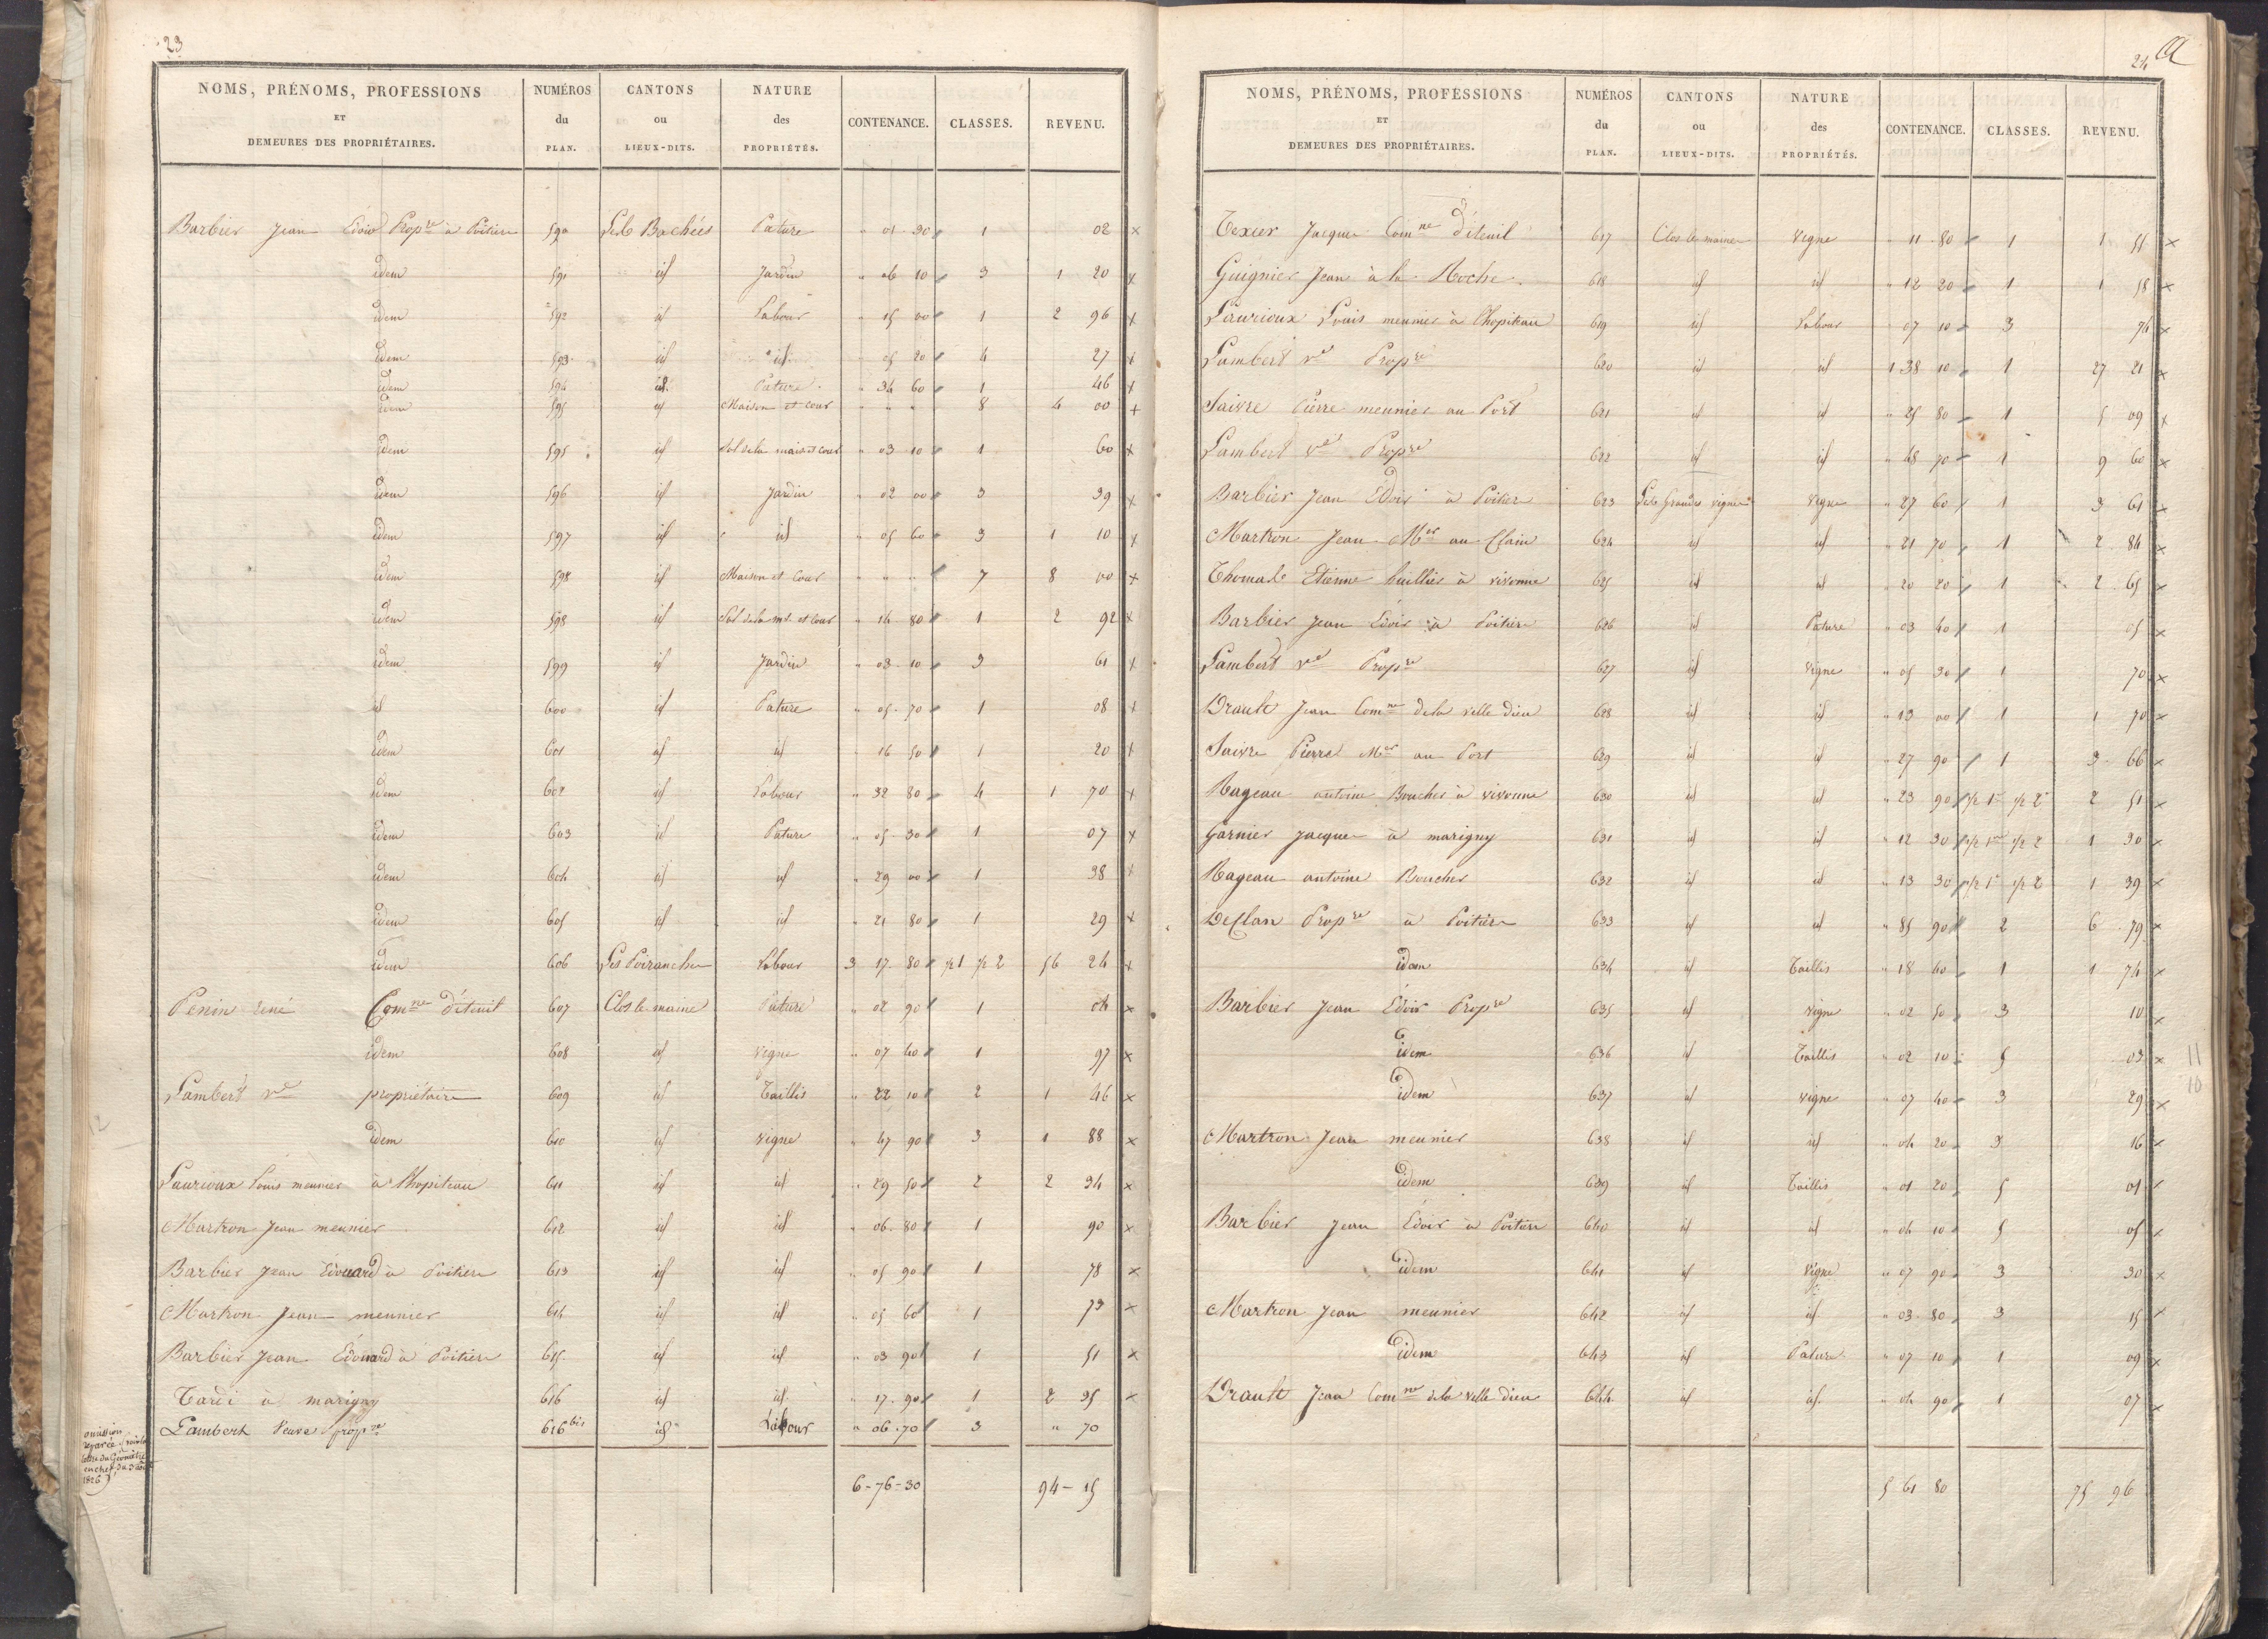 23
NOMS, PRÉNOMS, PROFESSIONS ET DEMEURES DES PROPRIÉTAIRES. NUMÉROS du PLAN. CANTONS ou LIEUX-DITS. NATURE des PROPRIÉTÉS. CONTENANCE. CLASSES. REVENU.
Barbier Jean Edoir Propre à Poitiers 590 Les Bachées Pature " 01 30 1 02 x
idem 591 id Jardin " 06 10 3 1 20 x
idem 592 id Labour " 15 00 1 2 96 x
idem 593 id id " 05 20 4 27 x
idem 594 id Pature " 34 60 1 46 x
idem 595 id Maison et Cour " " " 8 4 00 x
idem 595 id Sol de la mais et cour " 03 10 1 60 x
idem 596 id Jardin " 02 00 3 39 x
idem 597 id id " 05 60 3 1 10 x
idem 598 id Maison et Cour " " " 7 8 00 x
idem 598 id Sol de la mn et Cour " 14 80 1 2 92 x
idem 599 id Jardin " 03 10 3 61 x
id 600 id Pature " 05 70 1 08 x
idem 601 id id " 16 50 1 20 x
idem 602 id Labour " 32 80 4 1 70 x
idem 603 id Pature " 05 30 1 07 x
idem 604 id id " 29 00 1 38 x
idem 605 id id " 21 80 1 29 x
idem 606 Labour 3 17 80 1/2 1 1/2 2 56 24 x
Penin rené Comne d'iteuil 607 Clos le maine Pature " 02 90 1 04 x
idem 608 id vigne " 07 40 1 97 x
Lambert ve propriétaire 609 id Taillis " 22 10 2 1 46 x
idem 610 id vigne " 47 90 3 1 88 x
Laurioux Louis meunier à l'hopiteau 611 id id " 29 50 2 2 34 x
Martron Jean meunier 612 id id " 06 80 1 90 x
Barbier Jean Edouard à Poitiers 613 id id " 05 90 1 78 x
Martron Jean meunier 614 id id " 05 60 1 73 x
Barbier Jean Edouard à Poitiers 615 id id " 03 90 1 51 x
Tardi à marigny 616 id id " 17 90 1 2 35 x
Lambert Veuve propre 616 bis id Labour " 06 70 3 " 70
omission
réparée suivant
lettre du Géomètre
en chef du 3 août
1826
6-76-30 94-15
24
NOMS, PRÉNOMS, PROFESSIONS ET DEMEURES DES PROPRIÉTAIRES. NUMÉROS du PLAN. CANTONS ou LIEUX-DITS. NATURE des PROPRIÉTÉS. CONTENANCE. CLASSES. REVENU.
Texier Jacques Comne d'iteuil 617 Clos le maine vigne " 11 80 1 1 51 x
Guignier Jean à la Roche 618 id id " 12 20 1 1 58 x
Laurioux Louis meunier à l'hopiteau 619 id Labour " 07 10 3 74 x
Lambert ve Propre 620 id id 1 38 10 1 27 21 x
Saivre Pierre meunier au Port 621 id id " 25 80 1 5 09 x
Lambert ve Propre 622 id id " 48 70 1 9 60 x
Barbier Jean Edoir à Poitiers 623 Les Grandes vignes vigne " 27 60 1 3 61 x
Martron Jean Mer au Clain 624 id id " 21 70 1 2 84 x
Thomas Etienne huillier à vivonne 625 id id " 20 20 1 2 65 x
Barbier Jean Edoir à Poitiers 626 id Pature " 03 40 1 05 x
Lambert ve Propre 627 id vigne " 05 30 1 70 x
Drault Jean Comne de la ville dieu 628 id id " 13 00 1 1 70 x
Saivre Pierre Mer au Port 629 id id " 27 90 1 3 66 x
Rageau antoine Boucher à vivonne 630 id id " 23 90 1/2 1 1/2 2 2 51 x
Garnier jacques à marigny 631 id id " 12 30 1/2 1 1/2 2 1 30 x
Rageau antoine Boucher 632 id id " 13 30 1/2 1 1/2 2 1 39 x
DeClan Propre à Poitiers 633 id id " 85 90 2 6 79 x
idem 634 id Taillis " 18 40 1 1 74 x
Barbier Jean Edoir Propre 635 id vigne " 02 50 3 10 x
idem 636 id Taillis " 02 10 5 03 x
idem 637 id vigne " 07 40 3 29 x
Martron Jean meunier 638 id id " 04 20 3 16 x
idem 639 id Taillis " 01 20 5 01 x
Barbier Jean Edoir à Poitiers 640 id id " 04 10 5 05 x
idem 641 id vigne " 07 90 3 30 x
Martron Jean meunier 642 id id " 03 80 3 15 x
idem 643 id Pature " 07 10 1 09 x
Drault Jean Comne de la ville dieu 644 id id " 04 90 1 07 x
5 61 80 75 96